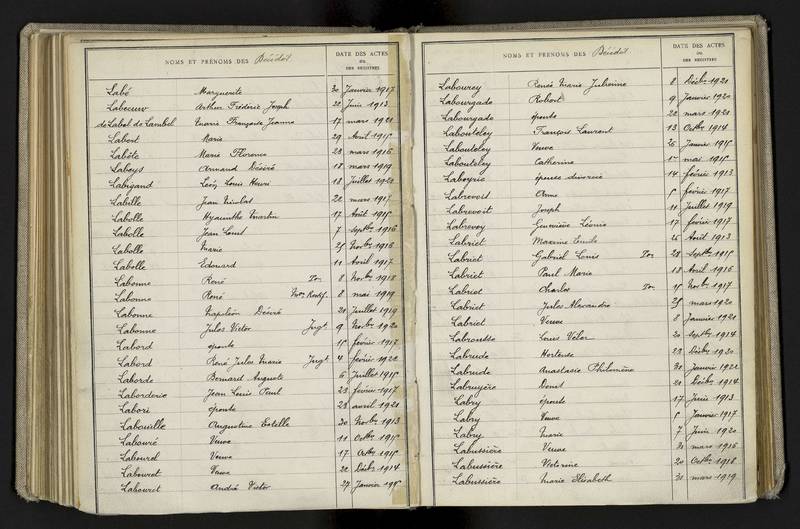 NOMS ET PRÉNOMS DES Décédés DATE DES ACTES OU DES REGISTRES
Labé Marguerite 30 Janvier 1917
Labecuw Arthur Frédéric Joseph 22 Juin 1913
de Labol de Lambel Marie Françoise Jeanne 17 mars 1921
Labort Marie 29 Avril 1915
Labôte Marie Florence 23 mars 1916
Laboys Armand Désiré 18 mars 1919
Labigand Léon Louis Henri 18 Juillet 1920
Labille Jean Nicolas 22 mars 1917
Labolle Hyacinthe Martin 17 Août 1915
Labolle Jean Louis 7 Septbre 1916
Labolle Marie 25 Novbre 1916
Labolle Edouard 11 Avril 1917
Labonne René Ton 8 Novbre 1918
Labonne René 8 mai 1919
Labonne Napoléon Désiré 21 Juillet 1919
Labonne Jules Victor Jugt 9 Novbre 1920
Labord épouse 15 février 1917
Labord René Jules Marie Jugt 4 février 1922
Laborde Bernard Auguste 6 Juillet 1915
Laborderie Jean Louis Paul 23 février 1917
Labori épouse 28 avril 1921
Labouille Augustine Estelle 30 Novbre 1913
Labouré Veuve 11 Octbre 1915
Labourel Veuve 17 Octbre 1915
Labouret Veuve 22 Décbre 1914
Labouret André Victor 27 Janvier
NOMS ET PRÉNOMS DES Décédés DATE DES ACTES OU DES REGISTRES
Labourey Renée Marie Julienne 8 Décbre 1921
Labourgade Robert 9 Janvier 1920
Labourgade épouse 22 mars 1921
Labouteley François Laurent 13 Octbre 1914
Labouteley Veuve 26 Janvier 1915
Labouteley Catherine mai 1915
Laboyrie épouse divorcée 14 février 1913
Labrevoit Anne 5 février 1917
Labrevoit Joseph 11 Juillet 1919
Labrevoy Geneviève Léonie 17 février 1917
Labriet Maxime Emile 26 Août 1913
Labriet Gabriel Louis Ton 28 Septbre 1915
Labriet Paul Marie 18 Avril 1916
Labriet Charles Ton 15 Novbre 1917
Labriet Jules Alexandre 25 mars 1920
Labriet Veuve 8 Janvier 1921
Labrousse Louis Victor 20 Septbre 1914
Labrude Hortense 23 Décbre 1920
Labrude Anastasie Philomène 30 Janvier 1922
Labruyère Denis 20 Décbre 1914
Labry épouse 17 Juin 1913
Labry Veuve 5 Janvier 1917
Labry Marie 7 Juin 1920
Labussière Veuve 31 mars 1916
Labussière Victorine 20 Octbre 1918
Labussière Marie Elisabeth 31 mars 1919